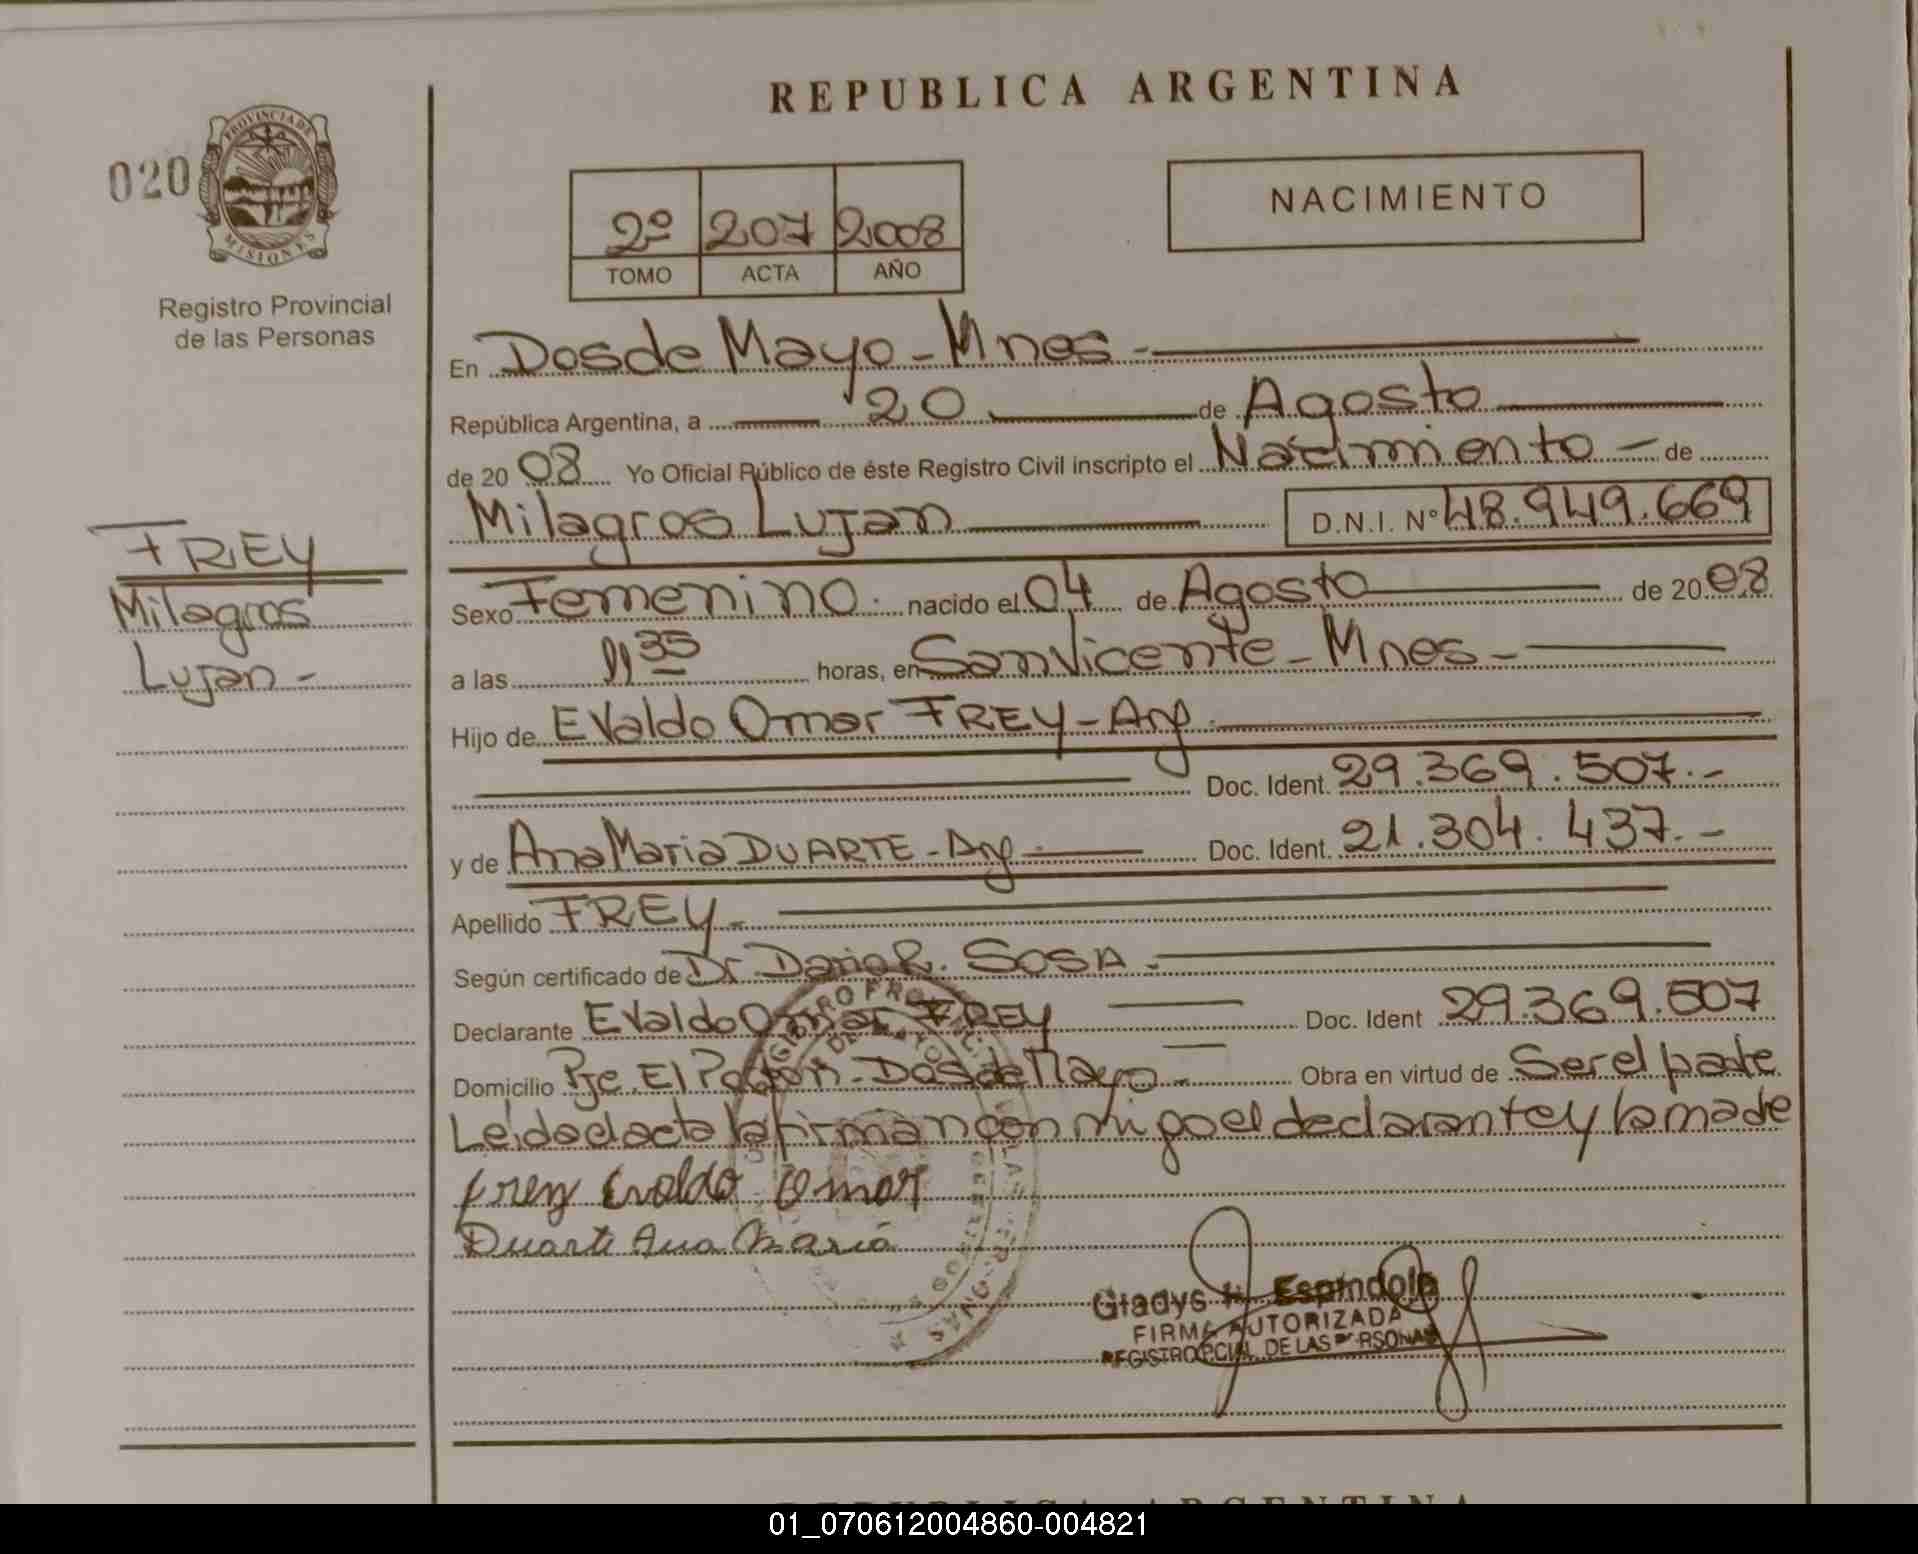 REPUBLICA ARGENTINA
020
PROVINCIA DE
MISIONES
Registro Provincial
de las Personas
2º 207 2008
TOMO ACTA AÑO
NACIMIENTO
En Dos de Mayo - Mnes -
República Argentina, a 20 de Agosto
de 20 08 Yo Oficial Público de éste Registro Civil inscripto el Nacimiento - de
Milagros Lujan D.N.I. Nº 48.949.669
FREY
Milagros
Lujan -
Sexo Femenino. nacido el 04 de Agosto de 20 08
a las 11 35 horas, en San Vicente - Mnes -
Hijo de Evaldo Omar FREY - Arg.
Doc. Ident. 29.369.507.-
y de Ana Maria DUARTE - Arg. Doc. Ident. 21.304.437.-
Apellido FREY -
Según certificado de Dr. Dario R. SOSA -
Declarante Evaldo Omar FREY Doc. Ident 29.369.507
Domicilio Pje. El - Dos de Mayo - Obra en virtud de Ser el padre
Leida el acta la firman con migo el declarante y la madre
Frey Evaldo Omar
Duarte Ana Maria
Gladys Espindola
FIRMA AUTORIZADA
REGISTRO PCIAL DE LAS PERSONAS
REPUBLICA ARGENTINA
01_070612004860-004821